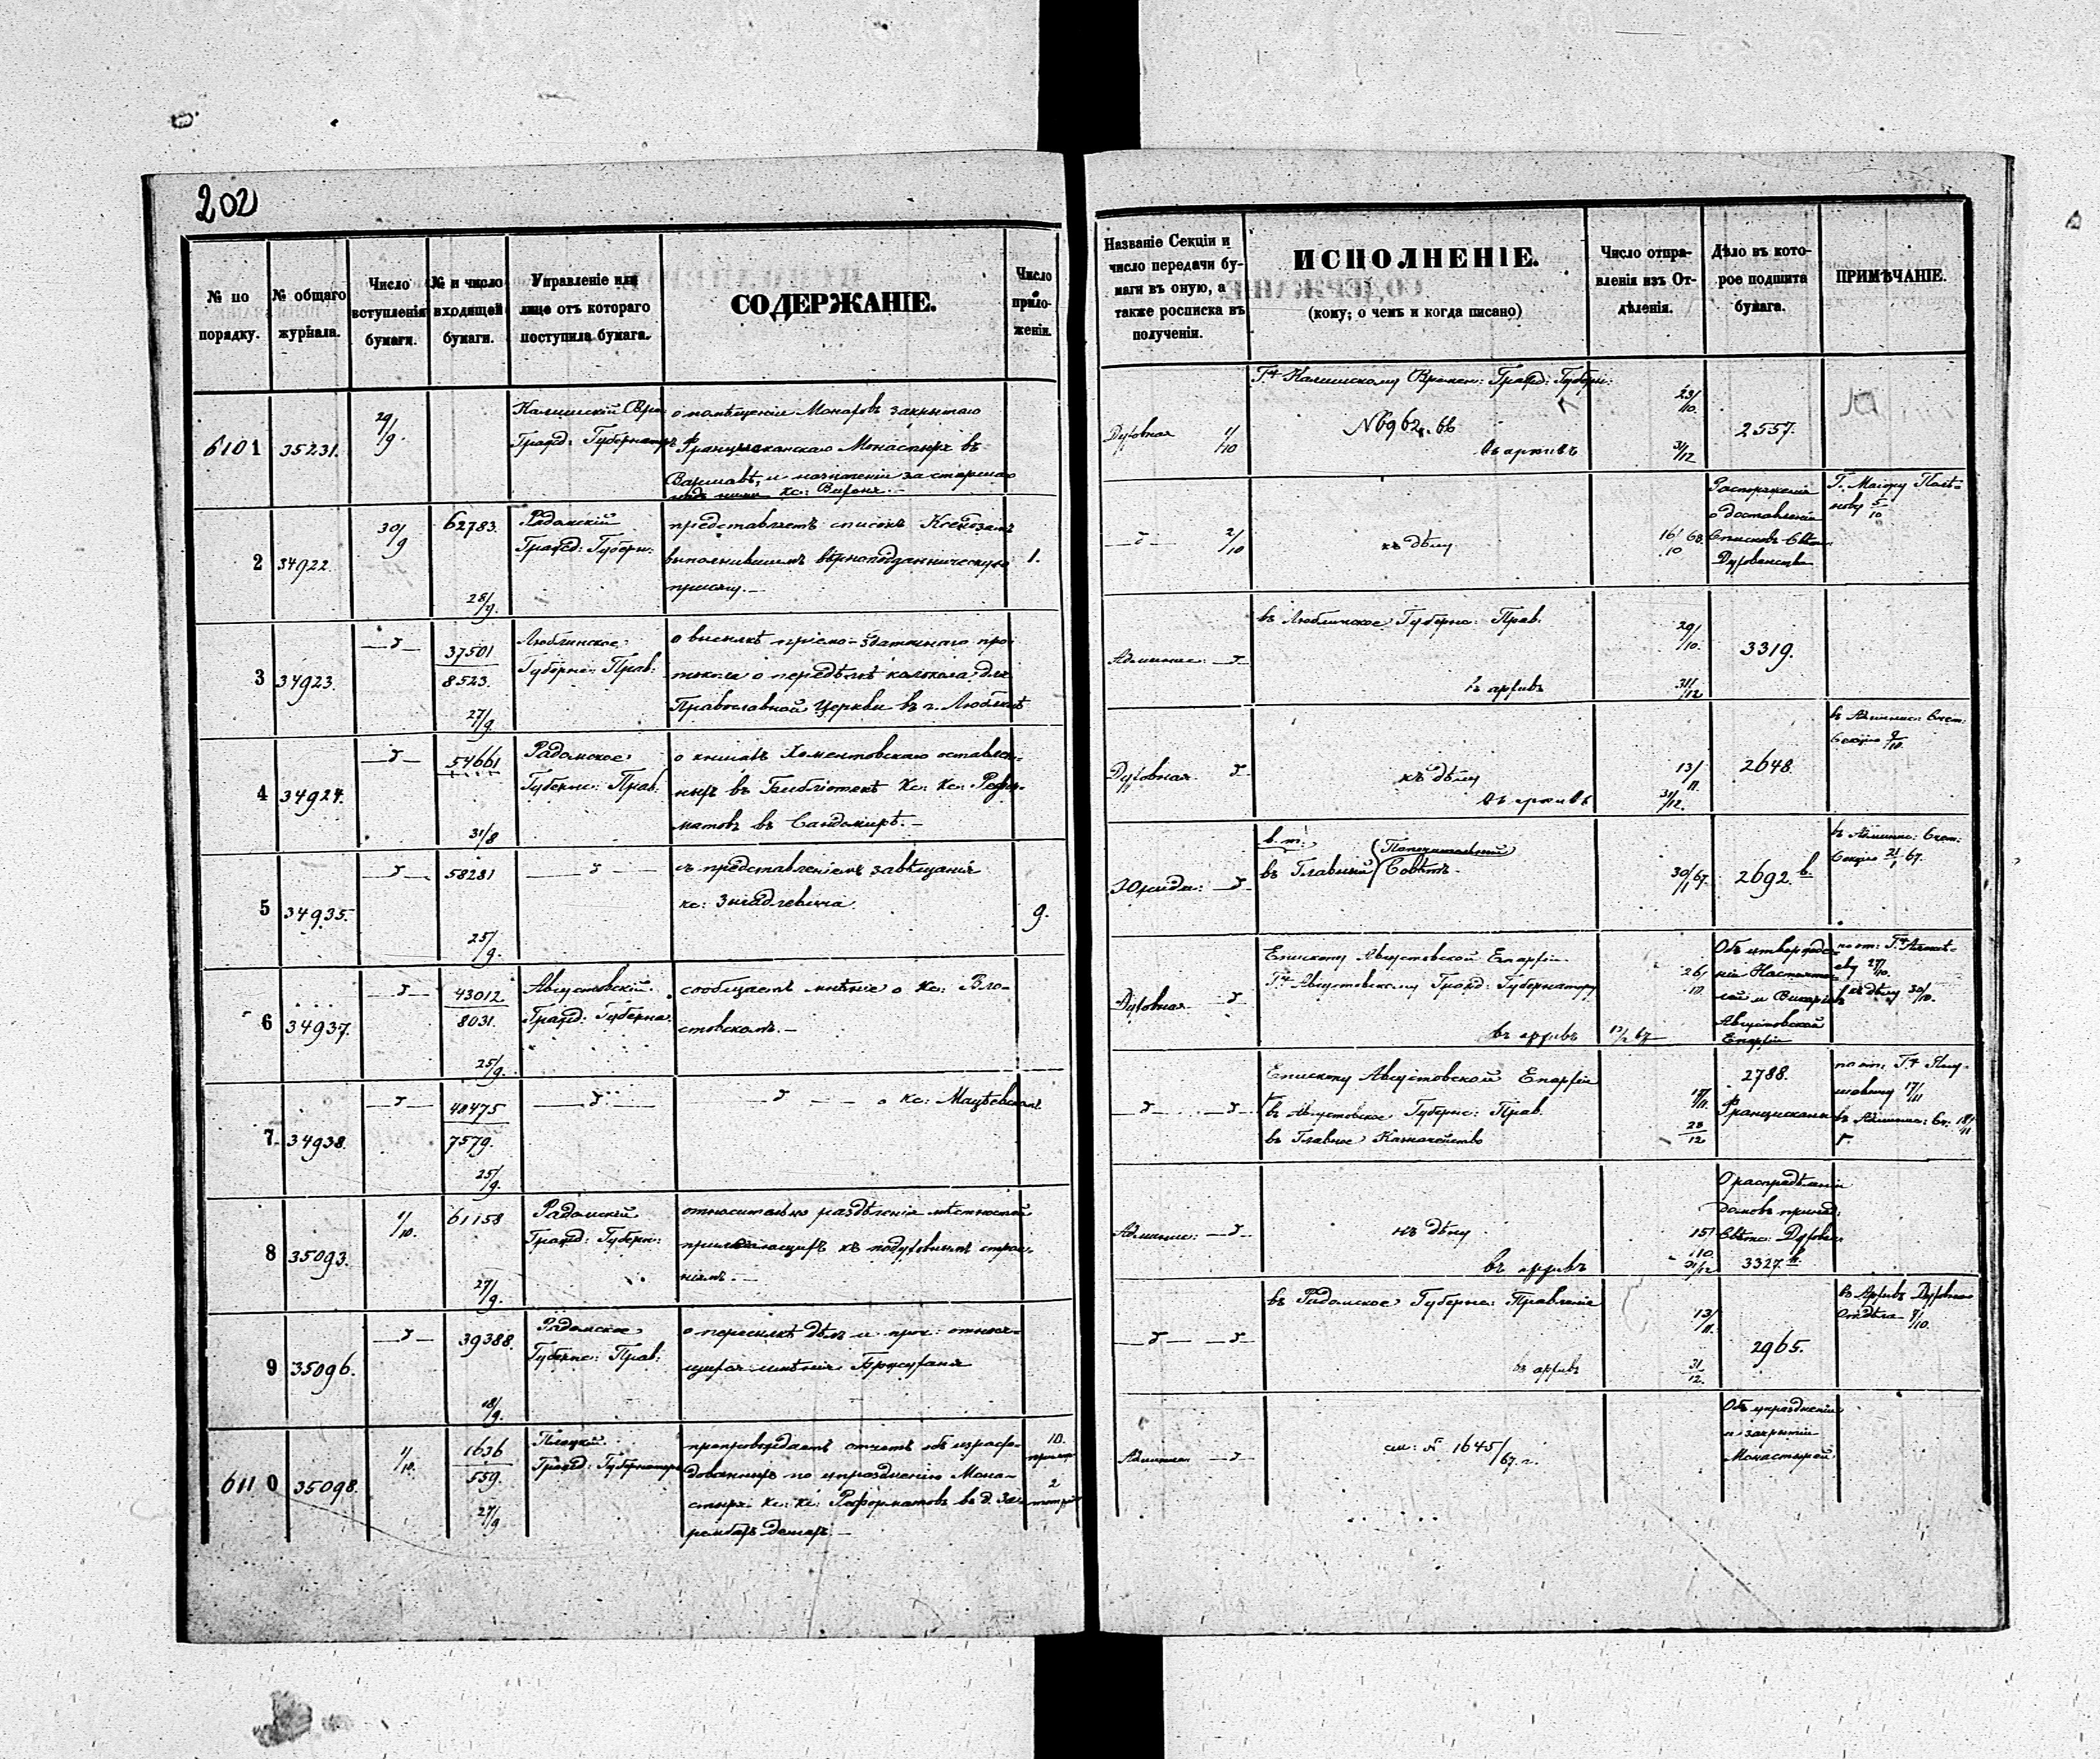 202
№ по порядку.
№ общаго журнала.
Число вступленія бумаги.
№ и число входящей бумаги.
Управленіе или лице отъ котораго поступила бумага.
СОДЕРЖАНІЕ.
Число прило- женій.
6101
35231.
29/9.
Калишскій
Гражд: Губернаторъ
о помѣщеніи Монаховъ закрытаго
Францисканскаго Монастыря въ
и назначеніи за старшаго
надъ ними кс:
2
34922
30/9
62783.
28/9.
Радомскій
Гражд: Губерн:
представляетъ списокъ Ксендзамъ
выполнившимъ вѣрноподданническую
присягу.—
1.
3
34923.
37501
8523.
27/9.
Люблинское
Губернс: Прав:
о высылкѣ пріемо-здаточнаго про-
токола о передѣлкѣ колокола для
Православной Церкви въ г.
4
34924.
54661
31/8
Радомское
Губернс: Прав:
о книгахъ Хоментовскаго оставлен-
ныхъ въ Библіотекѣ Кс: Кс: Рефор-
матовъ въ Сандомирѣ.—
5
34935.
58281
25/9.
съ представленіемъ завѣщанія
кс:
9.
6
34937.
43012
8031.
25/9.
Августовскій
Гражд: Губерна.
сообщаетъ мнѣніе о Кс: Вло-
стовскомъ.—
7
34938.
48475
7579.
25/9.
о Кс: Мацѣевскомъ
8
35093.
1/10.
61158
27/9.
Радомскій
Гражд: Губерн:
относительно раздѣленія мѣстностей
прилегающихъ къ подуховнымъ строе-
ніямъ.—
9
35096.
39388.
18/9.
Радомское
Губернс: Прав:
о пересылкѣ дѣлъ и проч: относя-
щихся имѣнія
6110
35098.
1/10.
1636
559.
27/9
Плоцкій
Гражд: Губернаторъ
препровождаетъ отчетъ объ израсхо-
дованныхъ по упраздненію Мона-
стыря Кс: Кс: Реформатовъ въ д. За-
10.
2
Названіе Секціи и число передачи бу- маги въ оную, а также росписка въ полученіи.
ИСПОЛНЕНІЕ.
(кому; о чемъ и когда писано)
Число отпра- вленія изъ От- дѣленія.
Дѣло въ кото- рое подшита бумага.
ПРИМѢЧАНІЕ.
Духовная
1/10
Гну Калишскому Времен: Гражд: Губерн:
№6962. 66
Въ архивъ
23/10.
31/12
2557.
2/10
къ дѣлу
16/10 68.
Распоряженія
о доставленіи
Списковъ
Духовенства
Г. Маіору
5/10
Админис:
въ Люблинское Губернс: Прав.
въ архивъ
29/10.
31/12
3319.
Духовная
къ дѣлу
въ архивъ
13/11.
31/12.
2648.
въ Админис: Счет:
Секцію 9/10.
Юриди:
въ Главный
Попечительный
Совѣтъ.
30/1 67.
2692.
въ Админис: Счет:
Секцію 21/1 67.
Духовная
Епископу Августовской Епархіи
Гну Августовскому Гражд: Губернатору
въ архивъ
26/10.
Объ утвержде-
ніи Настояте-
лей и Викаріевъ
Августовской
Епархіи
27/10.
къ дѣлу 30/10.
Епископу Августовской Епархіи
въ Августовское Губернс: Прав.
въ Главное Казначейство
17/11.
28/12
2788.
Францискани
17/11
въ Админис: Сч: 18/11
Админис:
къ дѣлу
въ архивъ
15/10.
31/12
О распредѣленіи
домовъ принад:
Свѣтс: Духовн:
3327.
въ Радомское Губернс: Правленіе
въ архивъ
13/11.
31/12.
2965.
въ Архивъ Духовнаго
Отдѣла 7/10.
см: № 1645/67 г.
Объ упраздненіи
и закрытіи
Монастырей